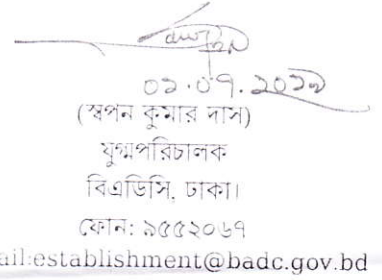 ০১.০৭.২০১৯
(স্বপন কুমার দাস)
যুগ্মপরিচালক
বিএডিসি, ঢাকা।
ফোন: ৯৫৫২০৬৭
ail:establishment@badc.gov.bd